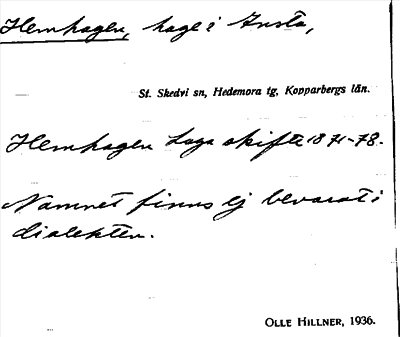 Hemhagen, hage i Ansta,
St. Skedvi sn, Hedemora tg, Kopparbergs län.
Hemhagen Laga skifte 1871-78.
Namnet finns ej bevarat i
dialekten.
OLLE HILLNER, 1936.